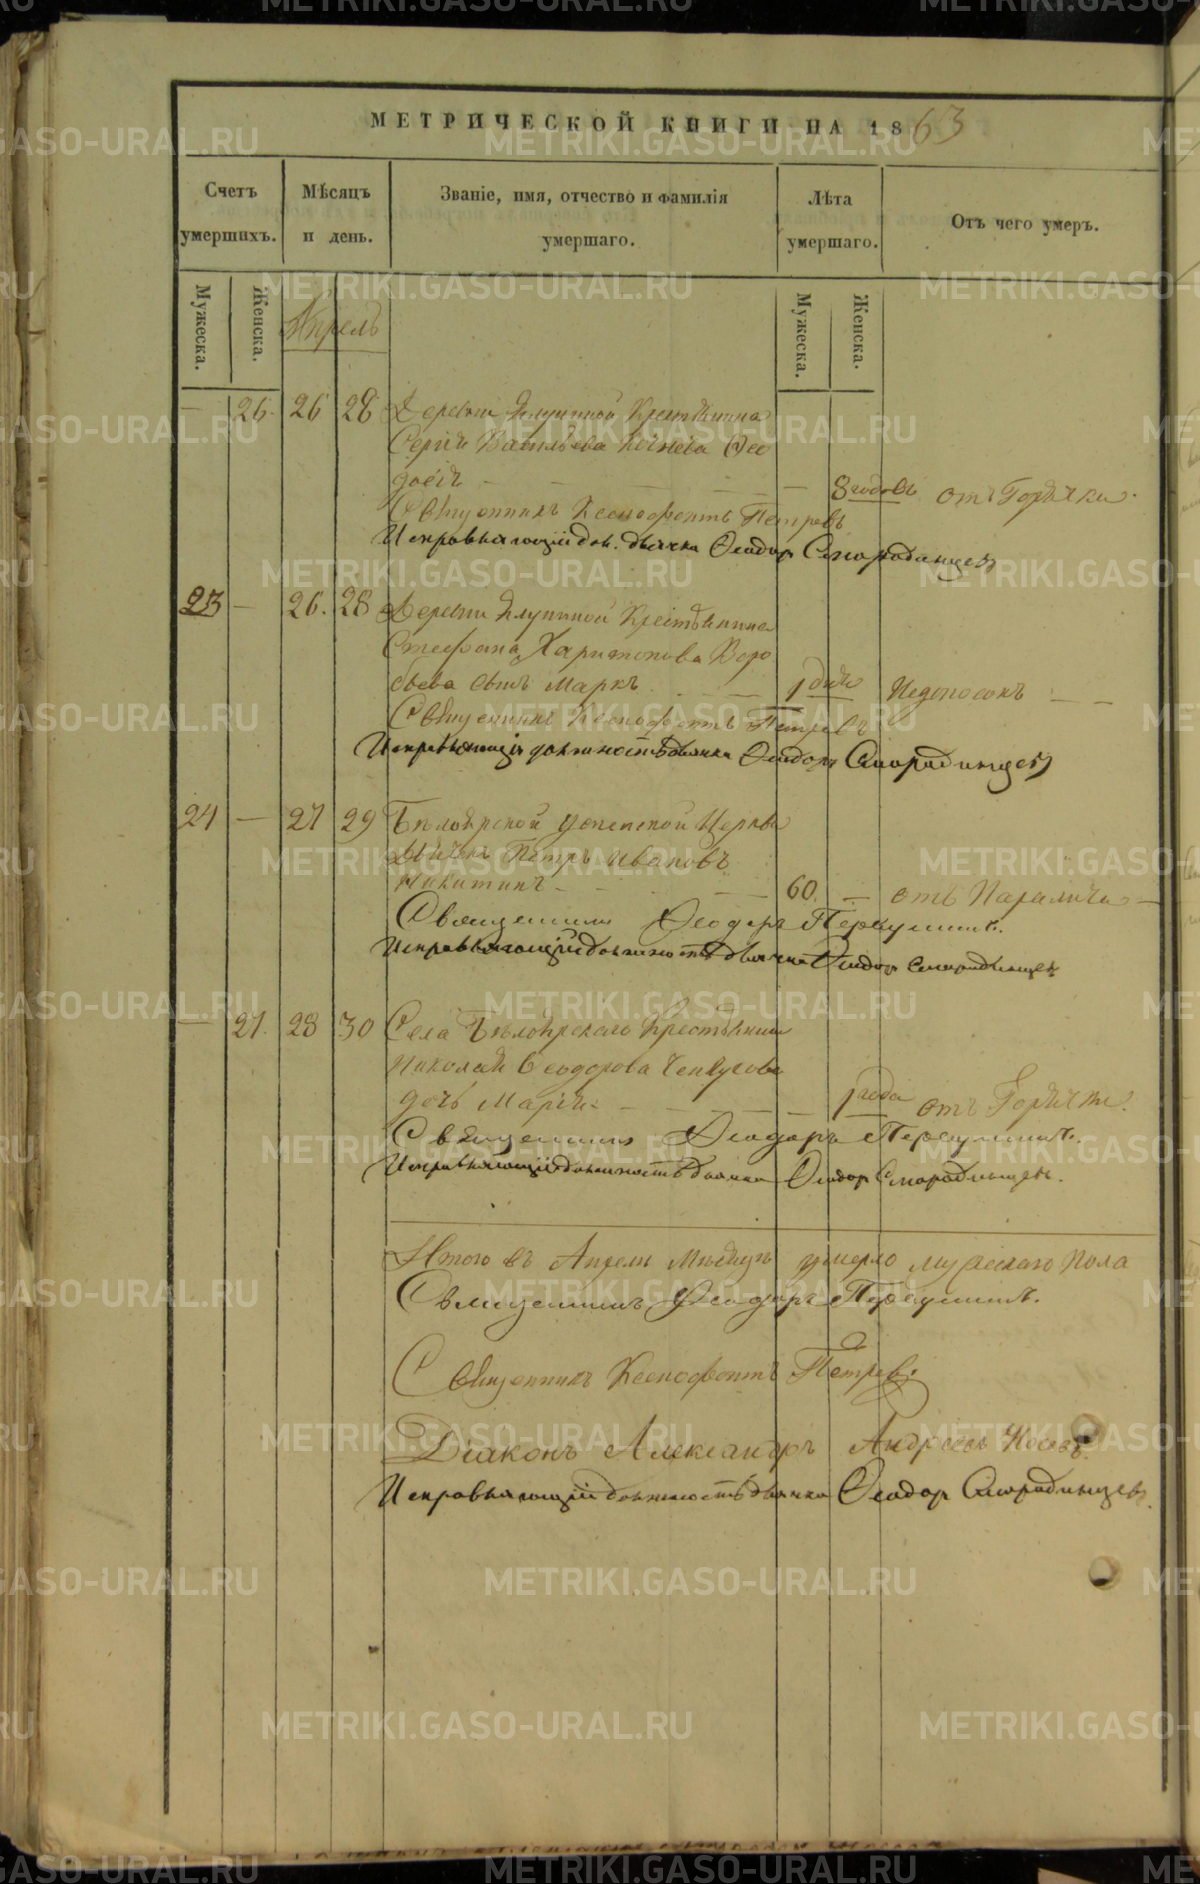 МЕТРИЧЕСКОЙ КНИГИ НА 1863
Счетъ умершихъ.
Мѣсяцъ и день.
Званіе, имя, отчество и фамилія умершаго.
Лѣта умершаго.
Отъ чего умеръ.
Мужеска.
Женска.
Апрель
Мужеска.
Женска.
— 26. 26 28 Деревни Крестьянина
Сергія Васильева
8 годовъ отъ Горячки.
Священникъ Ксенофонтъ Петровъ
Исправляющій дол. дьячка Феодор Смородинцев
23 — 26. 28 Деревни Крестьянина
Стефана Харитонова Воро
бьева сынъ Маркъ 1 дня Недоносокъ
Священникъ Ксенофонтъ Петровъ
Исправляющій должность дьячка Феодор Смородинцев
24 — 27 29 Бѣлоярской Успенской Церкви
Дьячекъ Петръ Ивановъ
Никитинъ 60. — отъ Паралича
Священникъ Феодоръ Первушинъ.
Исправляющій должность дьячка Феодор Смородинцев
— 27. 28 30 Села Бѣлоярскаго Крестьянина
Николая Феодорова
дочь Марія 1 года отъ Горячки.
Священникъ Феодоръ Первушинъ.
Исправляющій должность дьячка Феодор Смородинцев.
Итого въ Апрели Мѣсяцѣ умерло мужескаго пола
Священникъ Феодоръ Первушинъ.
Священникъ Ксенофонтъ Петровъ
Діаконъ Александръ Андреевъ Носовъ
Исправляющій должность дьячка Феодор Смородинцев.
METRIKI.GASO-URAL.RU